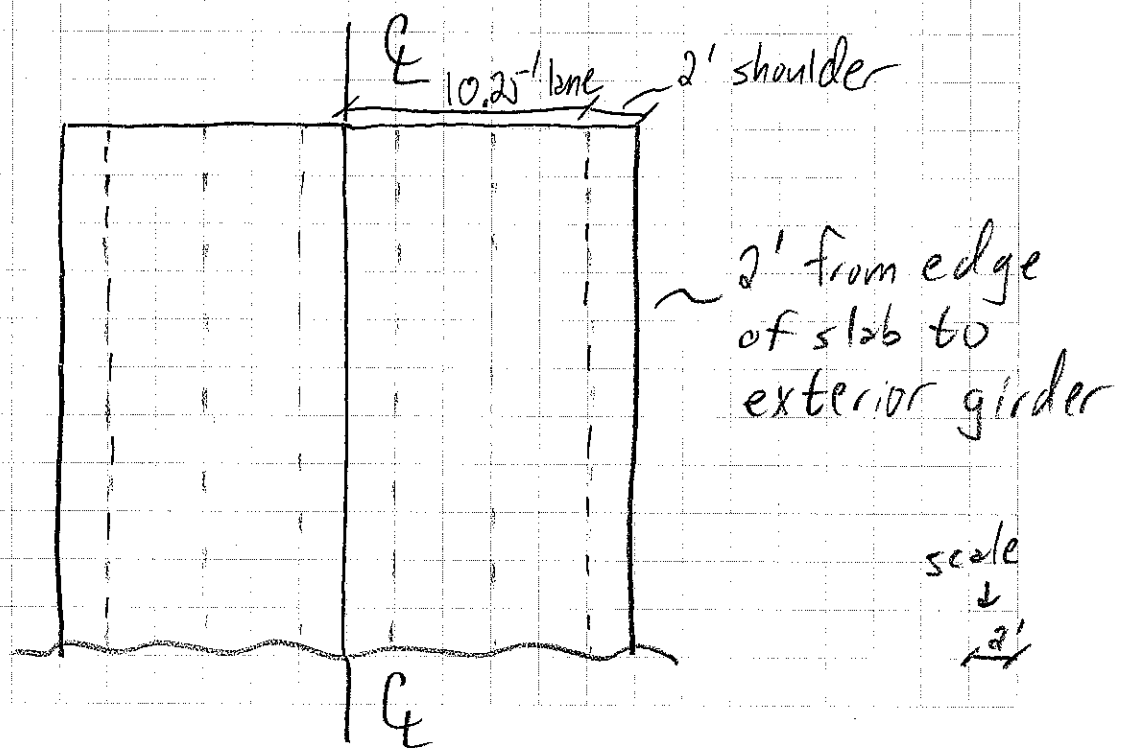 ℄
10.25' lane
2' shoulder
2' from edge
of slab to
exterior girder
scale
↓
2'
℄